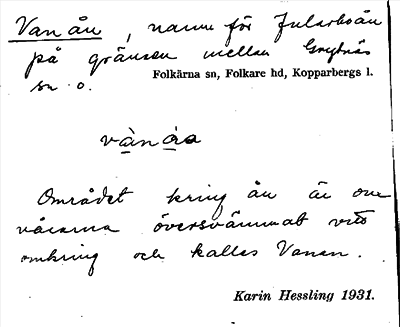 Van ån, namn för Fulsboån
på gränsen mellan Grytnäs
Folkärna sn, Folkare hd, Kopparbergs l.
sn o.
vànåa
Området kring ån är om
vårarna översvämmat vitt
omkring och kallas Vanen.
Karin Hessling 1931.